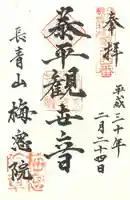 奉拝
平成三十年
二月二十四日
泰平観世音
長青山
梅窓院